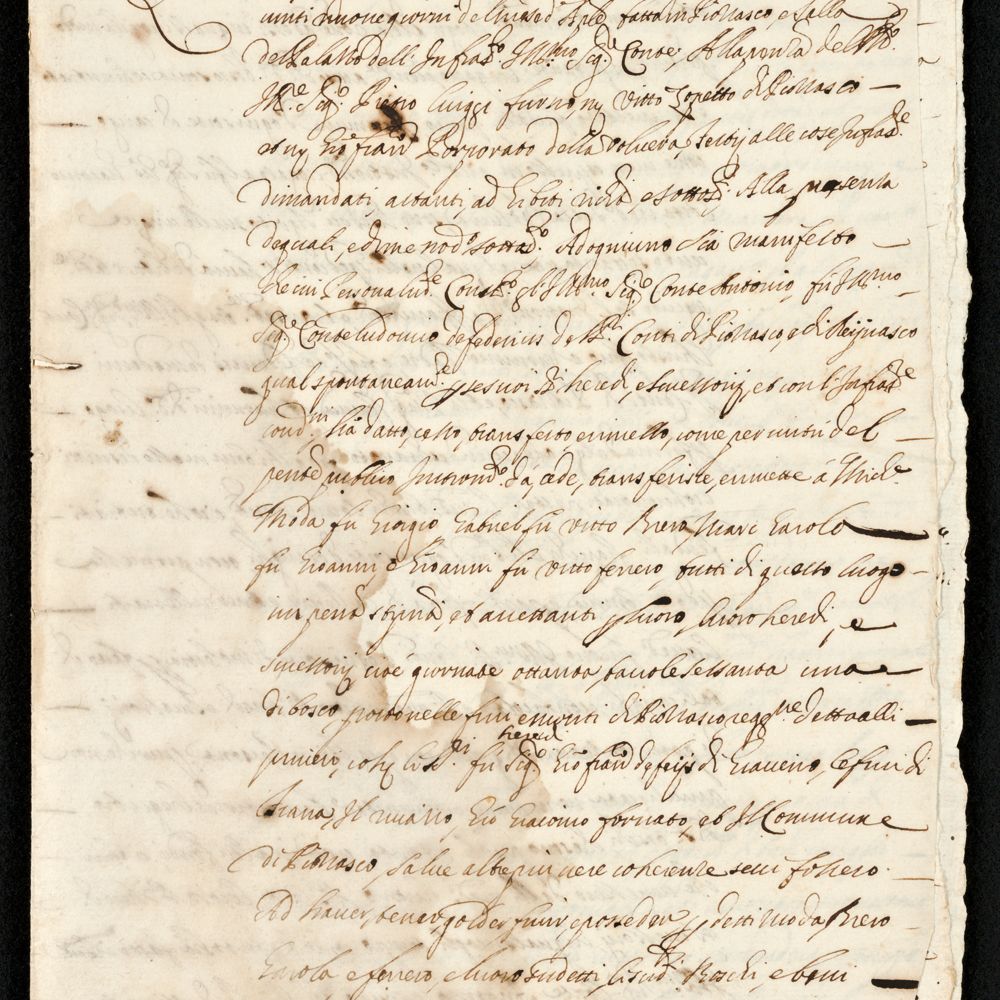 uinti nuone giorni del sud.º Aple, fatta in Piossasco, e salla
del Palatio dell' Infrasº. Ill.mo Sig.r Conte, Alla pnza del M.º
M.e Sig.r Pietro Luiggi furno, ny Vitto Zopetto di Piossasco —
et ny Gio fran.co Porporato della Voluera, testij alle cose Infras.e
dimandati, astanti, ad Eibiti richi, e sottos.i Alla presenza
de quali, e di me nod.º sottos.º Adogniuno sia manifesto —
che cui Personalm.te Const.º Il Ill.mo Sig.r Conte Antonio, fù Ill.mo
Sig.r Conte Ludouico de federicis de Sig.ri Conti di Piossasco, e di Reijnasco
qual spontaneam.e p esuoi heredi, e sucessorij, et con l'Infras.e
cond.ni hà datto, cesso, transferto e rimesso, come per uirtù del —
pente publico Instrom.to dà, cede, transferisse, e rimette à Mich.e
Moda fù Giorgio, Gabriel fù Vitto Riero, Marc Carolo —
fù Gioanni, e Gioanni fù Vitto ferrero, tutti di questo luogo —
iui penti stipnti, et accettanti p luoro, luoro heredi, e
sucessorij cioè giornate ottanta, tauole sessanta una
di bosco, poste nelle fini e monti di Piossasco regg.ne detta alli —
heredi
primiero, coh li s.ri fù Sig.r Gio fran.co de feijs di Giaueno, le fini di
Trana, Il riuasso, Gio Giacomo fornato, et Il Commune
di Piossasco, salue altre più uere coherenze seui fossero.
Ad hauer, tener, golder, fruir e posseder p detti Moda, Riero
Carola e ferrero, e luoro sudetti, li sud.i Boschi, e beni —